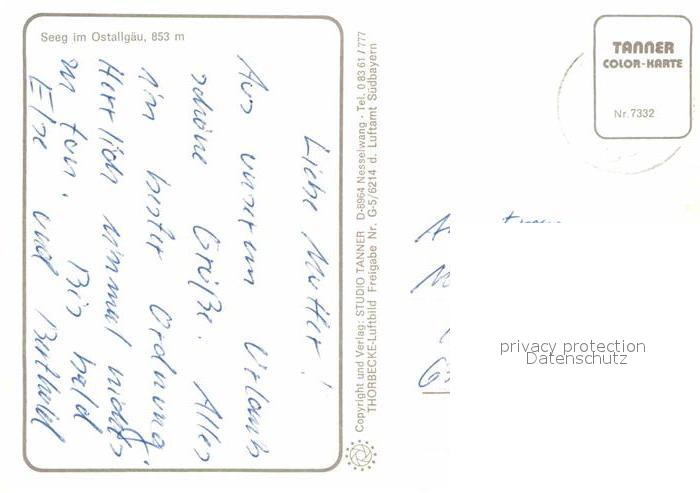 Seeg im Ostallgäu, 853 m
Liebe Mutter!
Aus unserem Urlaub
schöne Grüße. Alles
in bester Ordnung.
Herrlich nichts
zu tun. Bis bald
Else und Berthold
Copyright und Verlag: STUDIO TANNER D-8964 Nesselwang - Tel. 0 83 61 / 777
THORBECKE-Luftbild Freigabe Nr. G-5/6214 d. Luftamt Südbayern
TANNER
COLOR-KARTE
Nr. 7332
privacy protection
Datenschutz